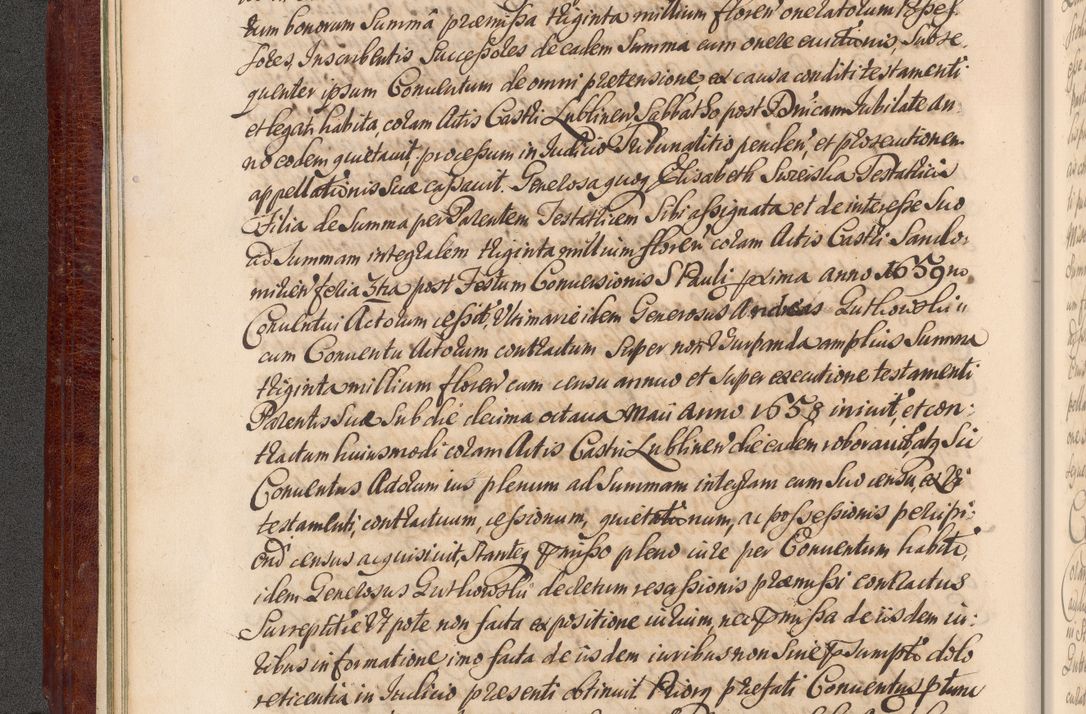 tum bonorum Summa præmissa triginta millium floren̄ oneratorum Posses
sores, Inscribentis Successores de eadem Summa cum onere evictionis, Subse
quenter ipsum Conventum de omni prætensione ex causa conditi testamenti
et legati habita, coram Actis Castri Lublinen̄ Sabbatho post Dnicam Jubilate an
no eodem quietavit processum in Judicio Tribunalitio penden̄, et prosecutionem
appellationis Suæ cassavit. Generosa quoq Elisabeth Testatricis
Filia de Summa per Parentem Testatricem Sibi assignata et de interesse Suo
ad Summam integralem triginta millium floren̄ coram Actis Castri Sando:
mirien̄ feria 3tia post Festum Conversionis S Pauli prima anno 1659no
Conventui Actorum cessit. Ultimarie idem Generosus Andreas Guthowskii
cum Conventu Actorum contractum Super non amplius Summa
triginta millium floren̄ cum censu annuo et Super executione testamenti
Parentis Suæ Sub die decima octava Maii Anno 1658 inivit, et con:
tractum huiusmodi coram Actis Castri Lublinen̄ die eadem roboravit, atq Sic
Conventus Actorum ius plenum ad Summam integram cum Suo censu, ex vi
testamenti, contractuum, cessionum, quietationum, ac possessionis percipi:
endi census acquisivit, Stanteq præmisso pleno iure per Conventum habito,
idem Generosus Guthowskii decretum rescissionis præmissi contractus
Surreptitie Ut pote non facta expositione iurium, nec præmissa de iisdem iu:
ribus informatione, imo facta de iisdem iuribus non Sine præsumpto dolo
reticentia in Judicio præsenti obtinuit Priorq præfati Conventus